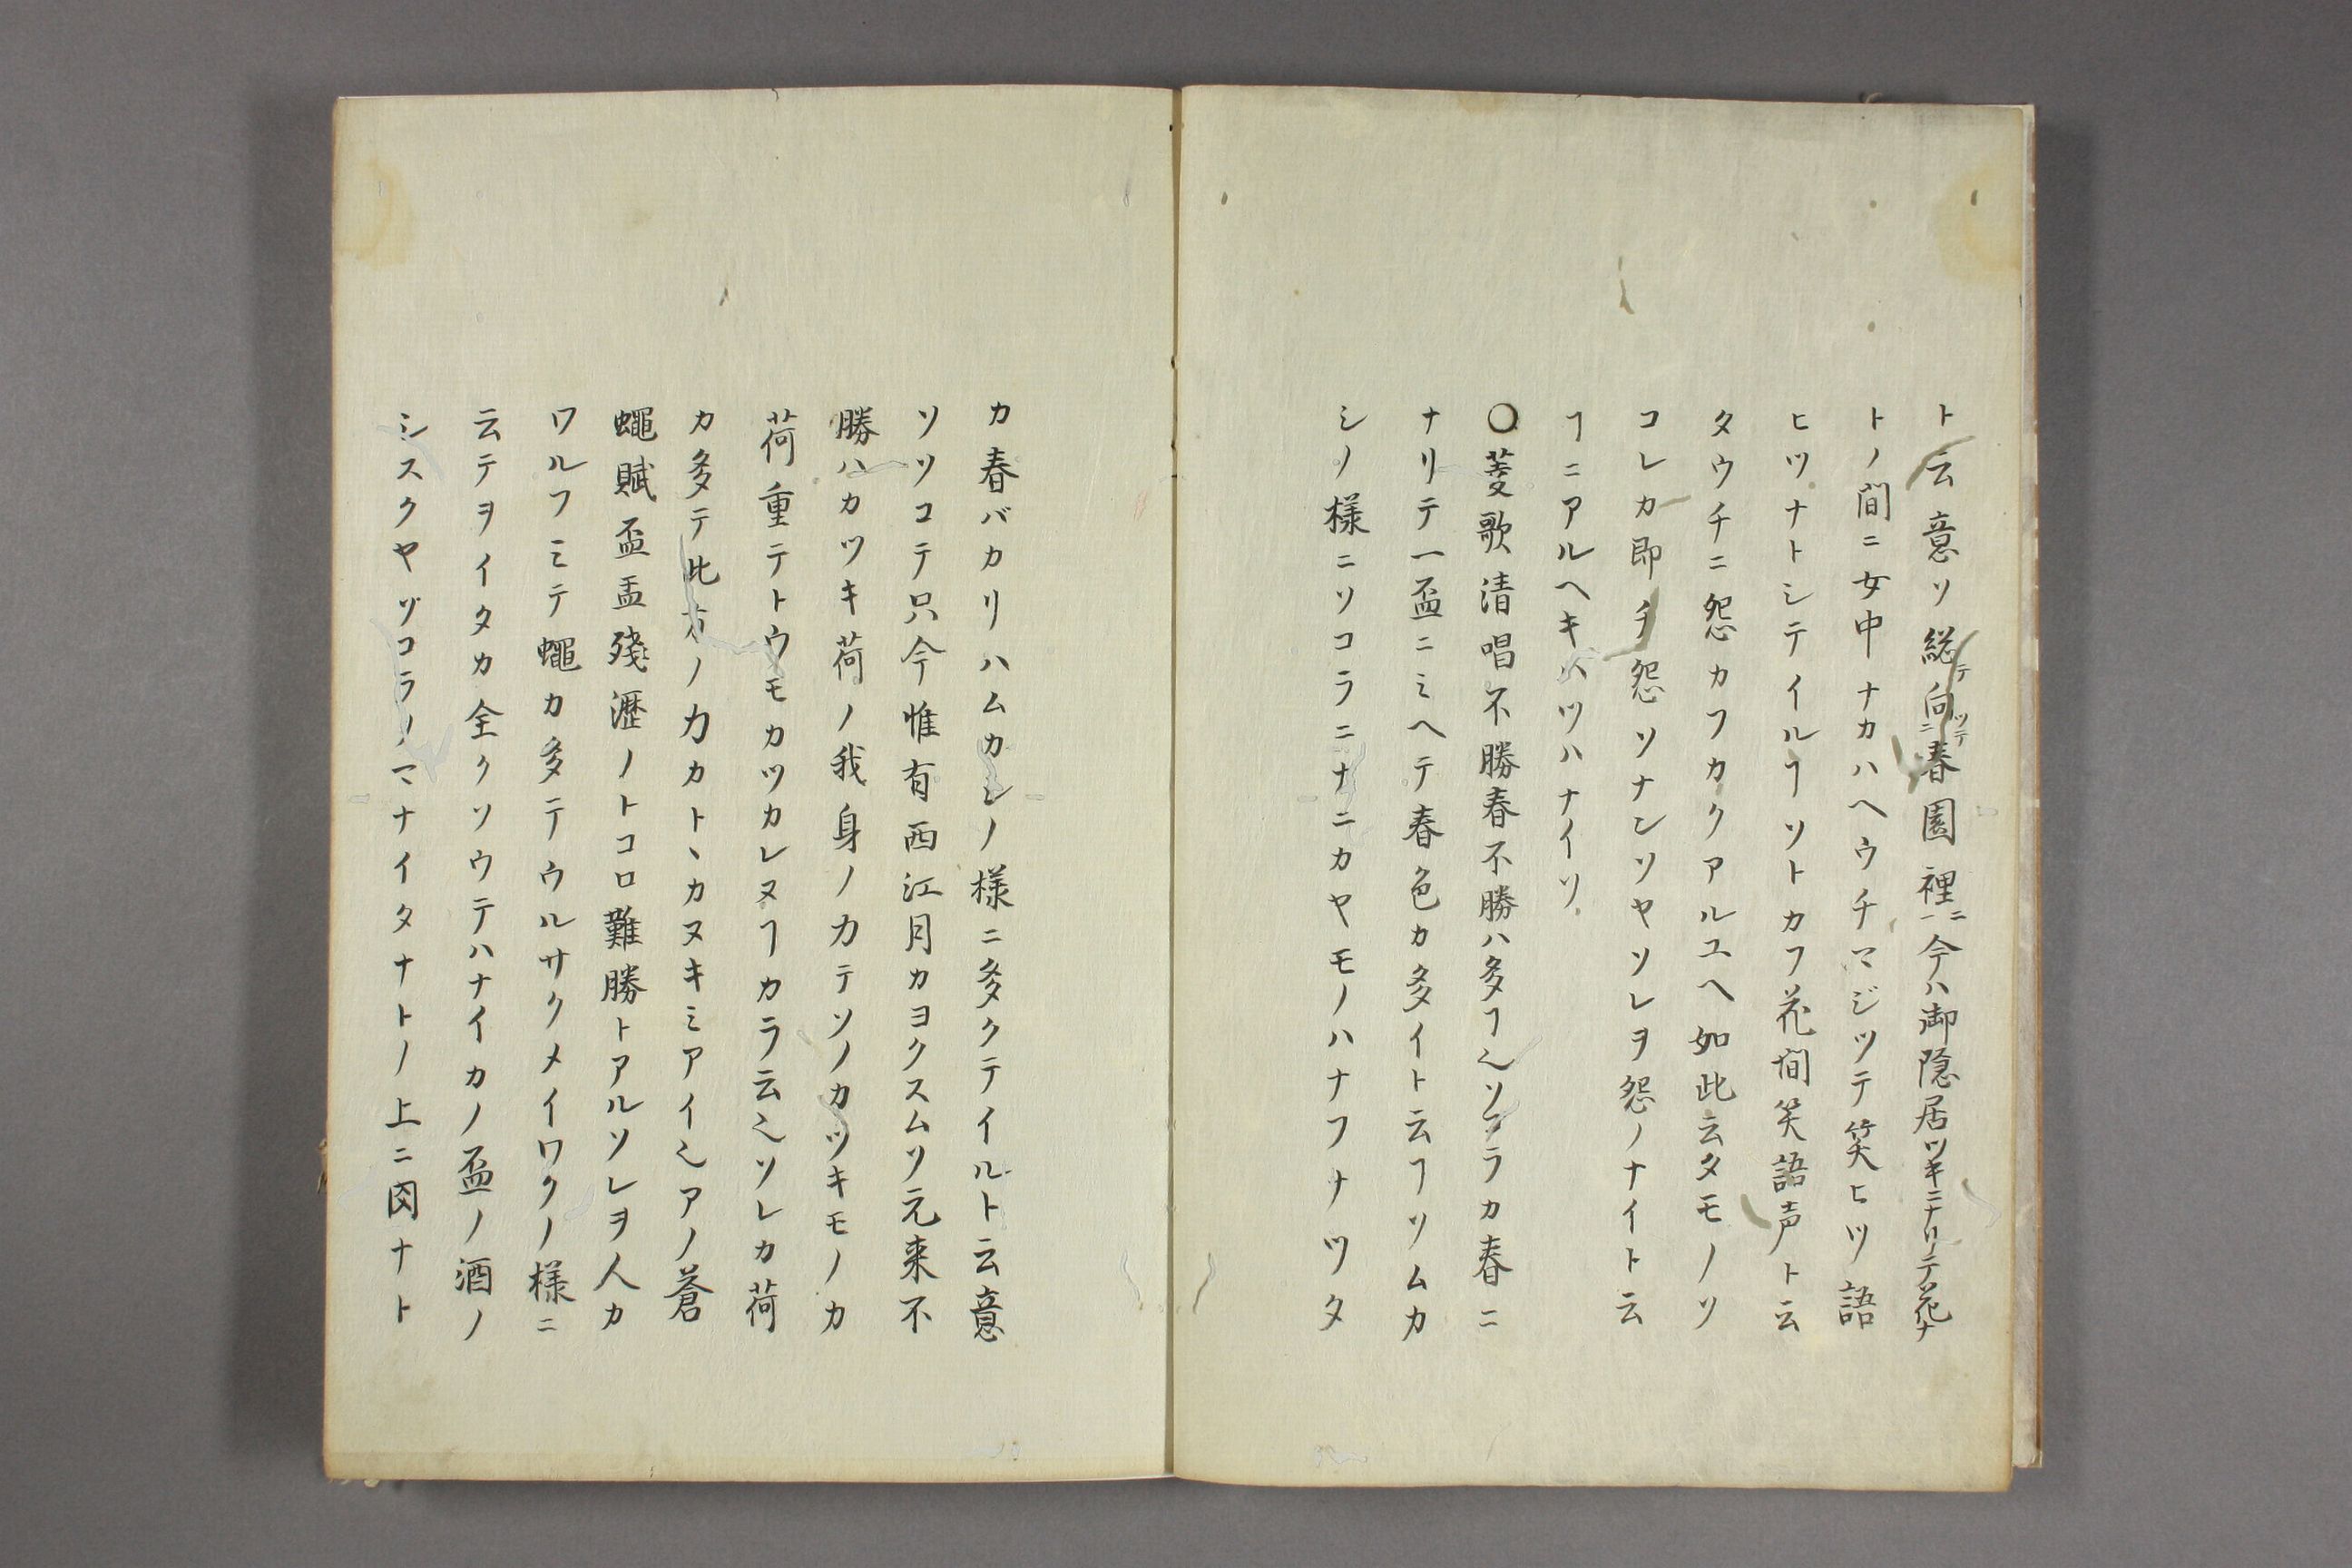 ト云意ソ総テ向ツテ_二春園裡_一ニ今ハ御隠居ツキニナリテ花ナ
トノ間ニ女中ナカハヘウチマジツテ笑ヒツ語
ヒツナトシテイルヿソトカフ花間笑語声ト云
タウチニ怨カフカクアルユヘ如此云タモノソ
コレカ即チ怨ソナンソヤソレヲ怨ノナイト云
ヿニアルヘキハツハナイソ
〇菱歌清唱不勝春不勝ハ多ヿ乄ソフラカ春ニ
ナリテ一盃ニミヘテ春色カ多イト云ヿソムカ
シノ様ニソコラニナニカヤモノハナフナツタ
カ春バカリハムカシノ様ニ多クテイルト云意
ソソコテ只今惟有西江月カヨクスムソ元来不
勝ハカツキ荷ノ我身ノカテソノカツキモノカ
荷重テトウモカツカレヌヿカラ云乄ソレカ荷
カ多テ此方ノ力カトヽカヌキミアイ乄アノ蒼
蠅賦盃盂殘瀝ノトコロ難勝トアルソレヲ人カ
ワルフミテ蠅カ多テウルサクメイワクノ様ニ
云テヲイタカ全クソウテハナイカノ盃ノ酒ノ
シスクヤヅコラノマナイタナトノ上ニ肉ナト